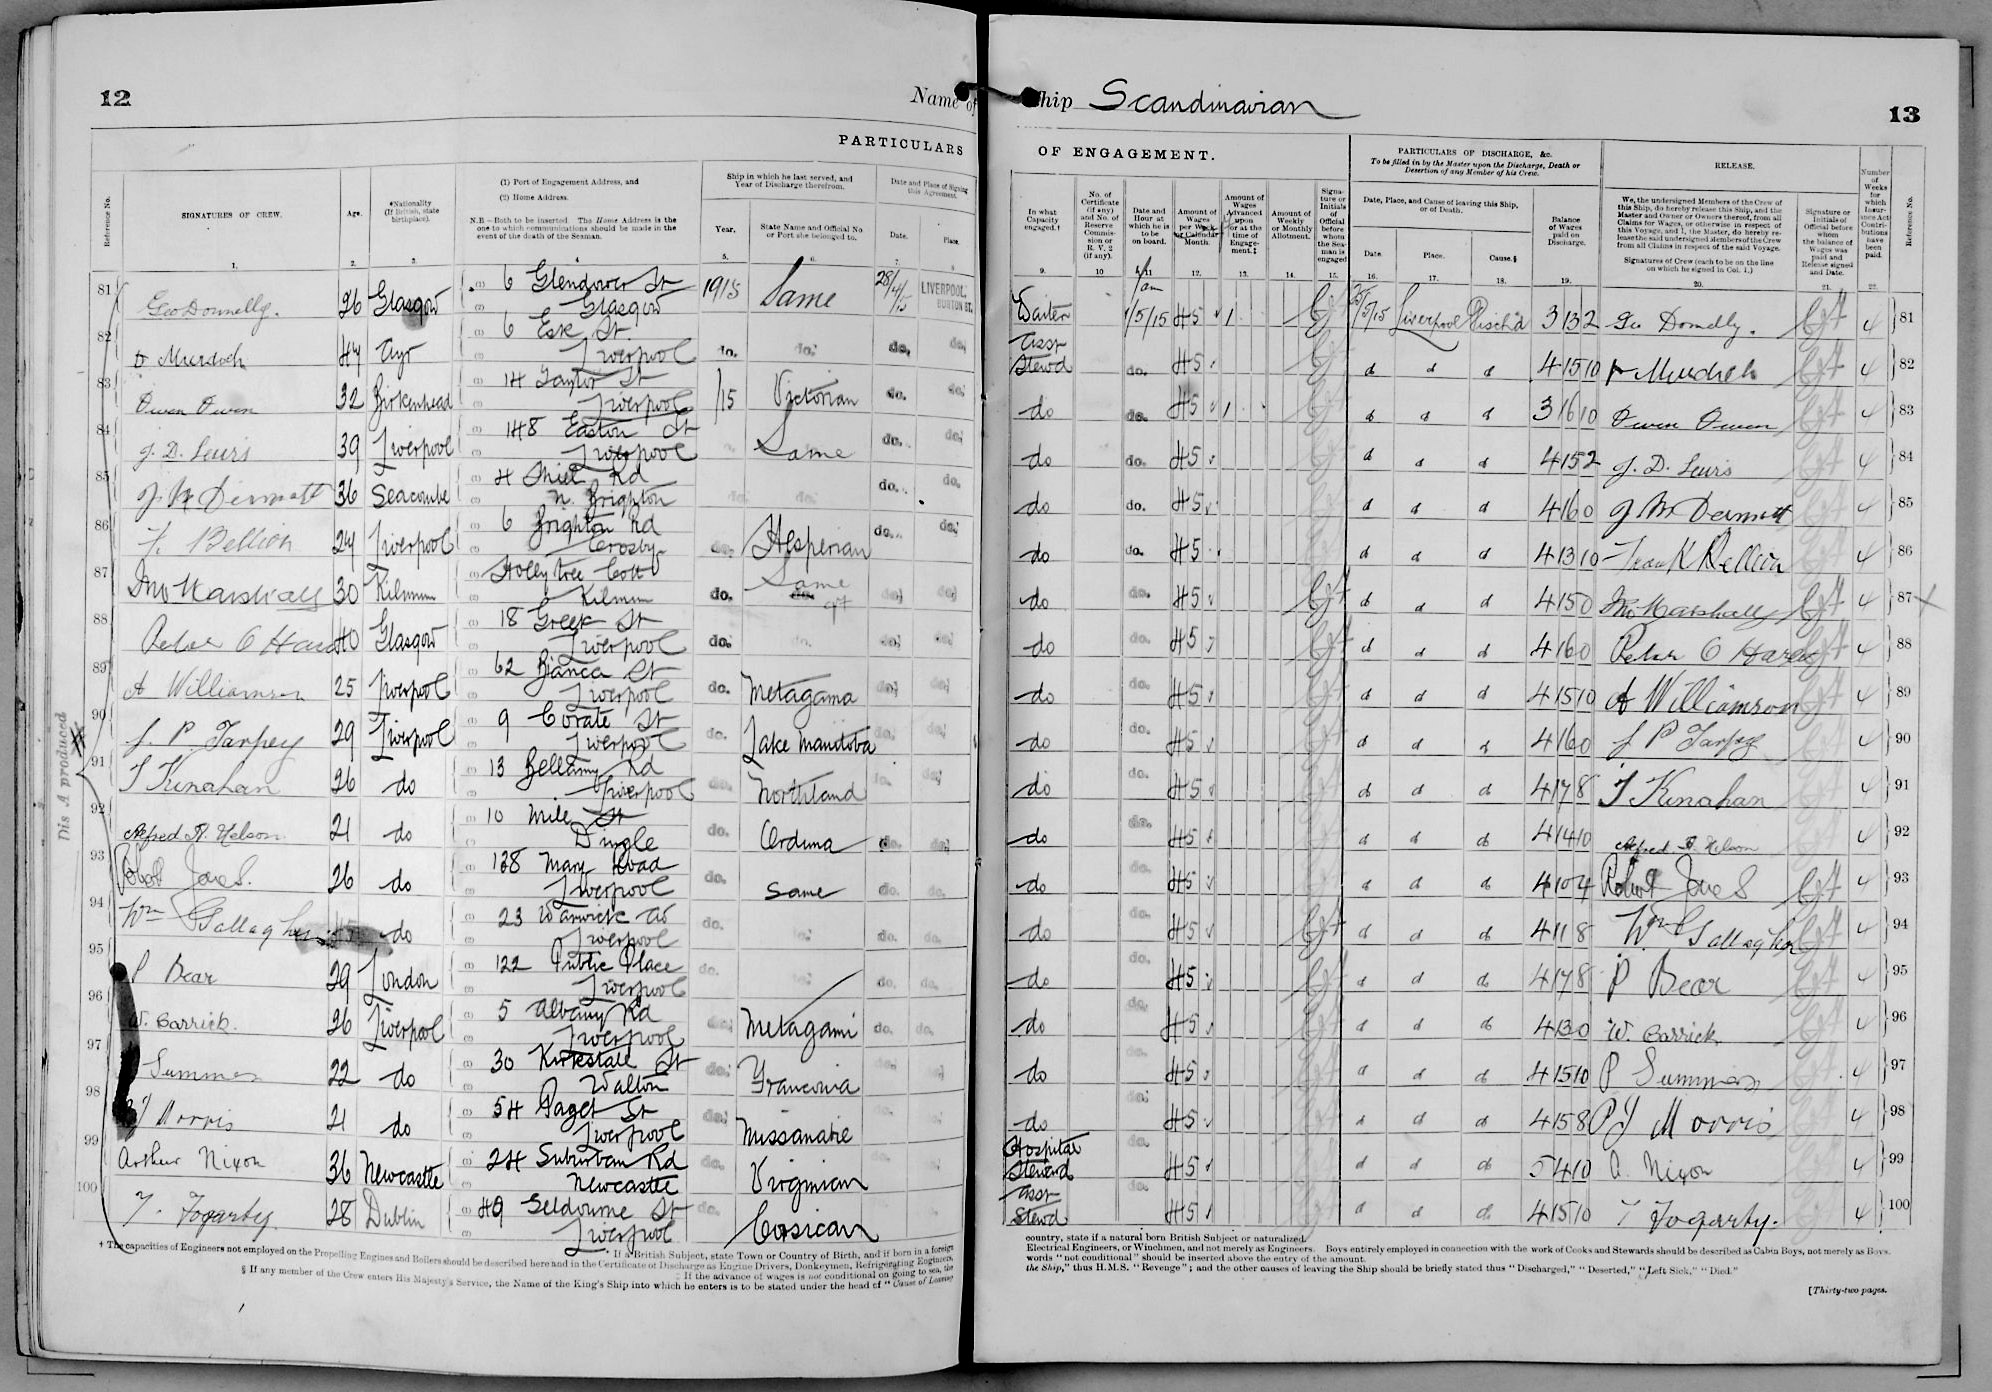 12
Name of
PARTICULARS
Reference No.
SIGNATURES OF CREW.
Age.
*Nationality (If British, state birthplace).
(1) Port of Engagement Address, and
(2) Home Address.
N.B.—Both to be inserted. The Home Address is the one to which communications should be made in the event of the death of the Seaman.
Ship in which he last served, and Year of Discharge therefrom.
Year.
State Name and Official No. or Port she belonged to.
Date and Place of Signing this Agreement.
Date.
Place.
1. 2. 3. 5. 6. 7. 8
81 Geo Donnelly. 26 Glasgow 6 Glendower St Glasgow 1915 Same 28/4/15 LIVERPOOL,
82 Murdoch 44 Ayr 6 Esk St Liverpool do. do. do. do.
83 Owen Owen 32 Birkenhead 14 Taylor St Liverpool /15 Victorian do. do.
84 J. D. Lewis 39 Liverpool 148 Easton St Liverpool Same do. do.
85 J Mc Dermott 36 Seacombe 4 Thiel Rd N. Brighton do. do. do. do.
86 F. Bellion 24 Liverpool 6 Brighton Rd Crosby do. Hesperian do. do.
87 Jno Marshall 30 Kilmun Hollytree Cott Kilmun do. Same do. do.
88 Peter O Hare 40 Glasgow 18 Greek St Liverpool do. do. do. do.
89 A Williamson 25 Liverpool 62 Bianca St Liverpool do. Metagama do. do.
90 J. P. Tarpey 29 Liverpool 9 Corate St Liverpool do. Lake Manitoba do. do.
91 T Kinahan 26 do 13 Bellamy Rd Liverpool do. Northland do. do.
92 Alfred R. Nelson 21 do 10 Mile St Dingle do. Orduna do. do.
93 Robert Jones. 26 do 128 Mary Road Liverpool do. Same do. do.
94 Wm Gallagher do 23 Warwick Liverpool do. do. do. do.
95 P Bear 29 London 122 Public Place Liverpool do. do. do.
96 W. Carrick. 26 Liverpool 5 Albany Rd Liverpool do. Metagami do. do.
97 Summers 22 do 30 Kirkstall St Walton do. Franconia do. do.
98 Morris 21 do 54 Paget St Liverpool do. Missanabie do.
99 Arthur Nixon 36 Newcastle 24 Suburban Rd Newcastle do. Virginian do.
100 T. Fogarty. 28 Dublin 49 Seldourne St Liverpool do. Corsican
Dis A produced
† The capacities of Engineers not employed on the Propelling Engines and Boilers should be described here and in the Certificate of Discharge as Engine Drivers, Donkeymen, Refrigerating Engineers,
* If a British Subject, state Town or Country of Birth, and if born in a foreign
‡ If the advance of wages is not conditional on going to sea, the
§ If any member of the Crew enters His Majesty's Service, the Name of the King's Ship into which he enters is to be stated under the head of "Cause of Leaving
Ship Scandinavian
13
OF ENGAGEMENT.
In what Capacity engaged.†
No. of Certificate (if any) and No. of Reserve Commission or R. V. 2 (if any).
Date and Hour at which he is to be on board.
Amount of Wages per Week or Calendar Month.
Amount of Wages Advanced upon at time of Engagement.‡
Amount of Weekly or Monthly Allotment.
Signature or Initials of Official before whom the Seaman is engaged
PARTICULARS OF DISCHARGE, &c.
To be filled in by the Master upon the Discharge, Death or Desertion of any Member of his Crew.
Date, Place, and Cause of leaving this Ship, or of Death.
Date.
Place.
Cause.§
Balance of Wages paid on Discharge.
RELEASE.
We, the undersigned Members of the Crew of this Ship, do hereby release this Ship, and the Master and Owner or Owners thereof, from all Claims for Wages, or otherwise in respect of this Voyage, and I, the Master, do hereby release the said undersigned Members of the Crew from all Claims in respect of the said Voyage.
Signatures of Crew (each to be on the line on which he signed in Col. 1.)
Signature or Initials of Official before whom the balance of Wages was paid and Release signed and Date.
Number of Weeks for which Insurance Act Contributions have been paid.
Reference No.
9. 10 11 12. 13. 14. 15. 16. 17. 18. 19. 20. 21. 22.
Waiter 1/5/15 4 5 1 /5/15 Liverpool Disch'd 3 13 2 Geo Donnelly. 4 81
Asst Stewd do. 4 5 d d d 4 15 10 Murdoch 4 82
do do. 4 5 1 d d d 3 16 10 Owen Owen 4 83
do do. 4 5 d d d 4 15 2 J. D. Lewis 4 84
do do. 4 5 d d d 4 16 0 J Mc Dermott 4 85
do do. 4 5 d d d 4 13 10 Frank Bellion 4 86
do do. 4 5 d d d 4 15 0 Jno Marshall 4 87
do do. 4 5 d d d 4 16 0 Peter O Hare 4 88
do do. 4 5 d d d 4 15 10 A Williamson 4 89
do do. 4 5 d d d 4 16 0 J P Tarpey 4 90
do do. 4 5 d d d 4 17 8 T Kinahan 4 91
do do. 4 5 d d d 4 14 10 Alfred R. Nelson 4 92
do do. 4 5 d d d 4 10 4 Robert Jones 4 93
do do. 4 5 d d d 4 11 8 Wm Gallagher 4 94
do do. 4 5 d d d 4 17 8 P Bear 4 95
do do. 4 5 d d d 4 13 0 W. Carrick 4 96
do do. 4 5 d d d 4 15 10 P Summers 4 97
do do. 4 5 d d d 4 15 8 P J Morris 4 98
Hospital Steward do. 4 5 d d d 5 4 10 A. Nixon 4 99
Asst Stewd do. 4 5 d d d 4 15 10 T Fogarty. 4 100
country, state if a natural born British Subject or naturalized.
Electrical Engineers, or Winchmen, and not merely as Engineers. Boys entirely employed in connection with the work of Cooks and Stewards should be described as Cabin Boys, not merely as Boys.
words "not conditional" should be inserted above the entry of the amount.
the Ship," thus H.M.S. "Revenge"; and the other causes of leaving the Ship should be briefly stated thus "Discharged," "Deserted," "Left Sick," "Died."
[Thirty-two pages.